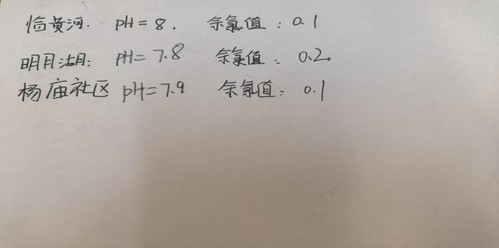 临黄河. pH=8. 余氯值: 0.1
明月湖: pH=7.8 余氯值: 0.2
杨庙社区 pH=7.9 余氯值: 0.1